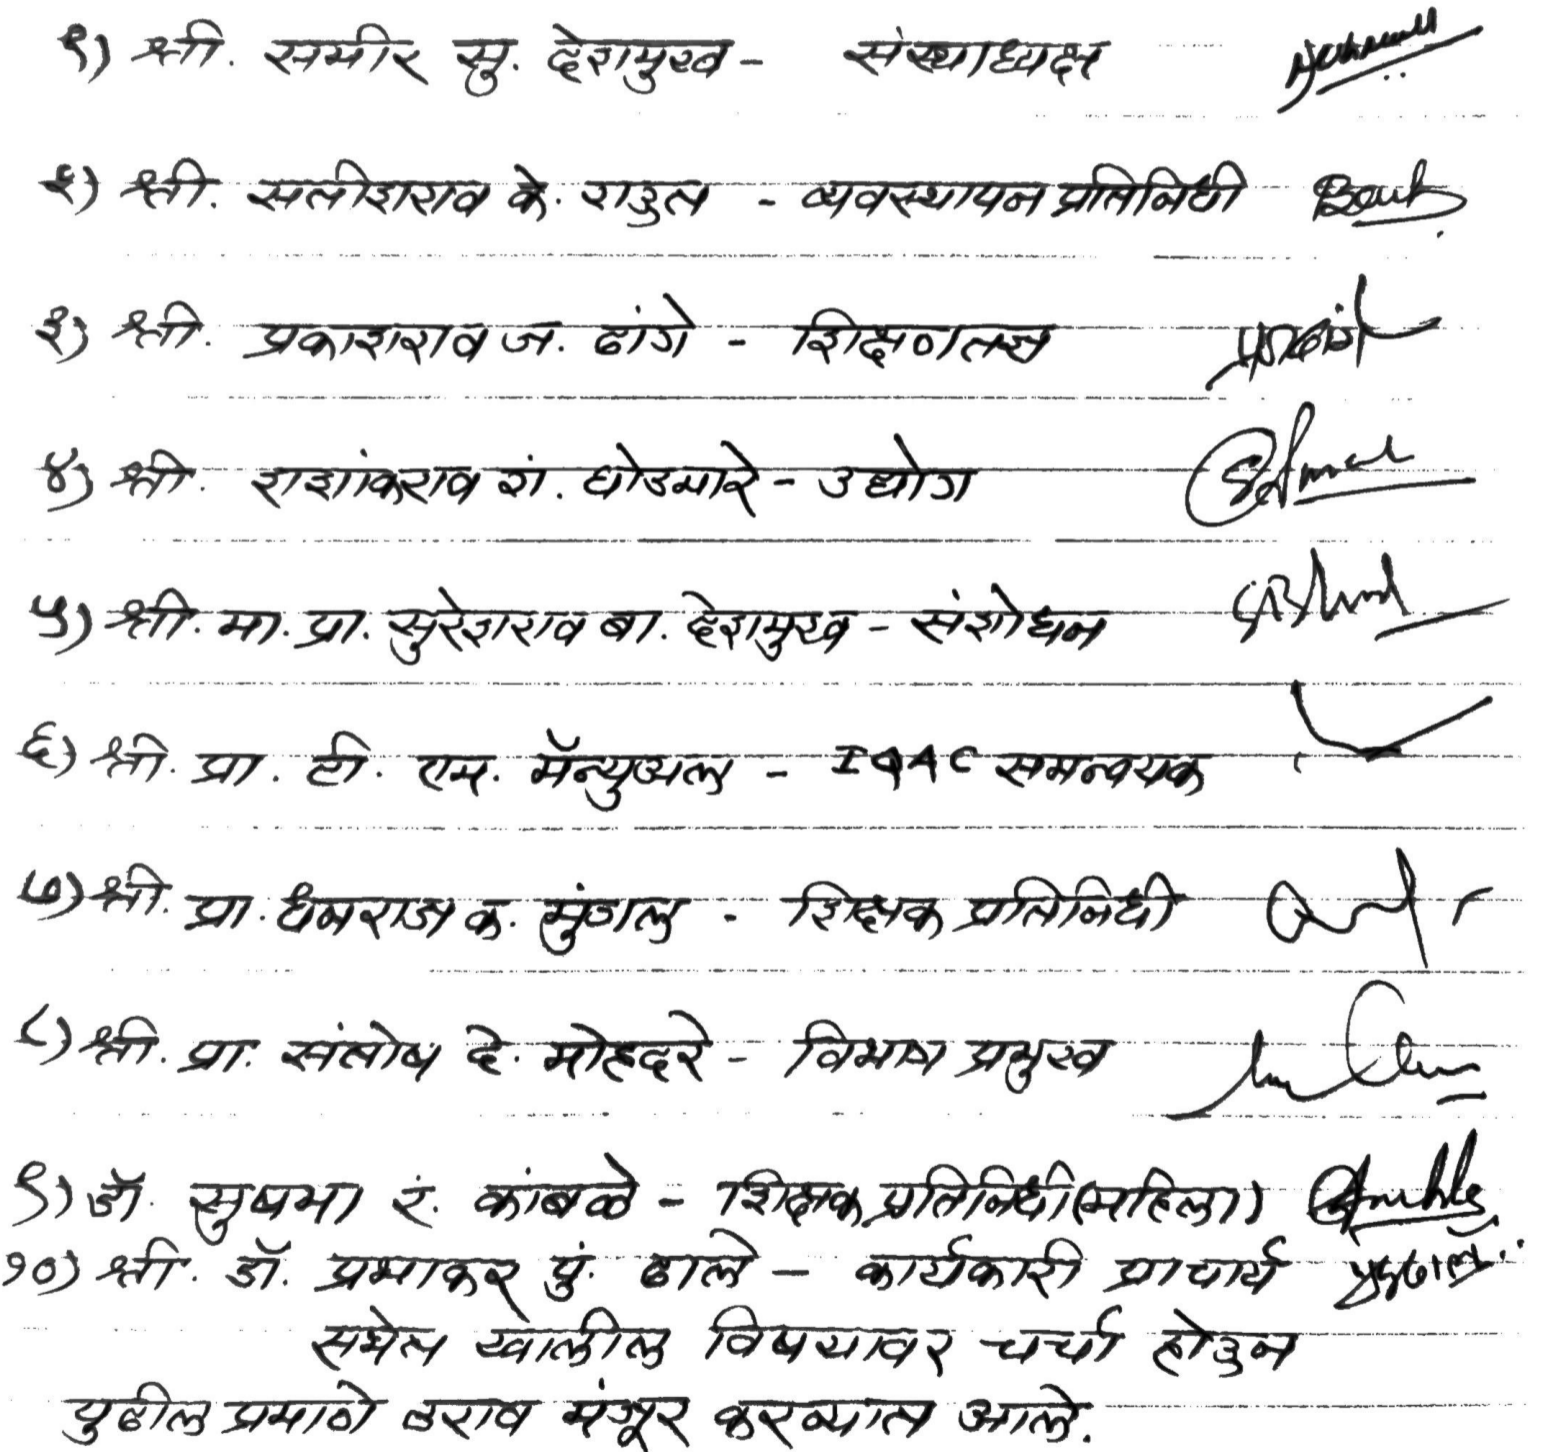 १) श्री. समीर सु. देशमुख - संस्थाध्यक्ष
२) श्री. सतीशराव के. राउत - व्यवस्थापन प्रतिनिधी
३) श्री. प्रकाशराव ज. ढांगे - शिक्षणतज्ञ
४) श्री. शशांकराव शं. घोडमारे - उद्योग
५) श्री. मा. प्रा. सुरेशराव बा. देशमुख - संशोधन
६) श्री. प्रा. टी. एम. मॅन्युअल - IQAC समन्वयक
७) श्री. प्रा. धनराज क. मुंगल - शिक्षक प्रतिनिधी
८) श्री. प्रा. संतोष दे. मोहदरे - विभाग प्रमुख
९) डॉ. सुषमा रं. कांबळे - शिक्षक प्रतिनिधी (महिला)
१०) श्री. डॉ. प्रभाकर पुं. ढाले - कार्यकारी प्राचार्य
सभेत खालील विषयावर चर्चा होउन
पुढील प्रमाणे ठराव मंजूर करण्यात आले.